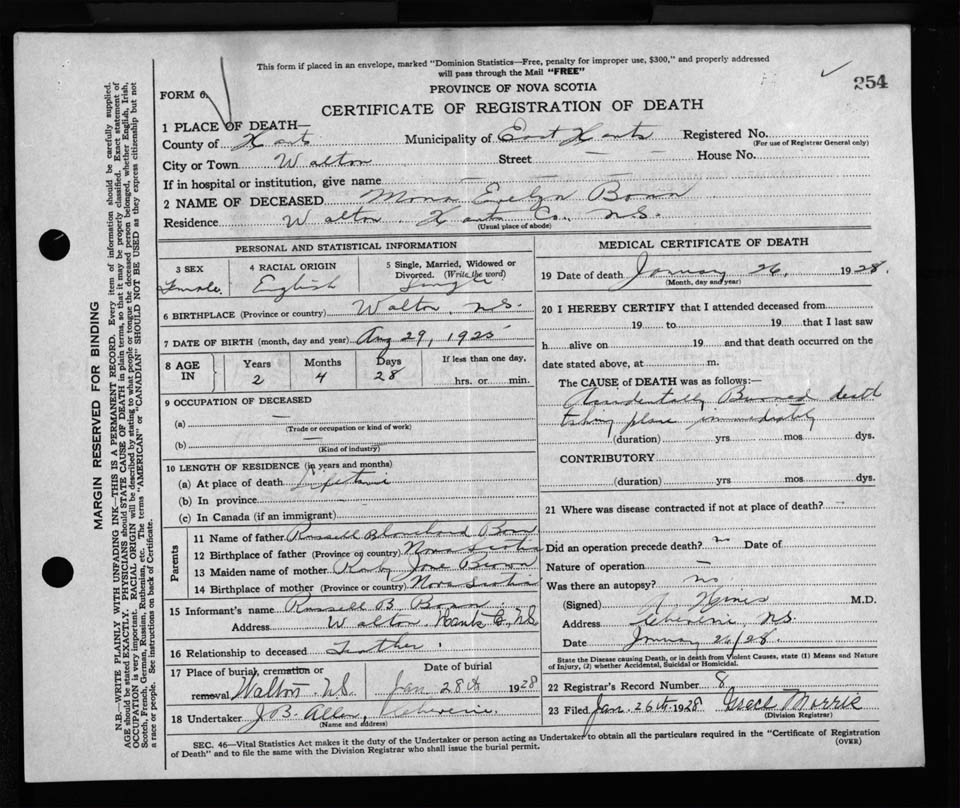 This form if placed in an envelope, marked "Dominion Statistics—Free, penalty for improper use, $300," and properly addressed
will pass through the Mail "FREE"
254
FORM 6.
PROVINCE OF NOVA SCOTIA
CERTIFICATE OF REGISTRATION OF DEATH
1 PLACE OF DEATH—
County of Hants Municipality of East Hants Registered No.
(For use of Registrar General only)
City or Town Walton Street — House No. —
If in hospital or institution, give name — — —
2 NAME OF DECEASED Mona Evelyn
Residence Walton Hants Co., N.S.
(Usual place of abode)
PERSONAL AND STATISTICAL INFORMATION
3 SEX 4 RACIAL ORIGIN 5 Single, Married, Widowed or Divorced. (Write the word)
Female. English Single
6 BIRTHPLACE (Province or country) Walton, N.S.
7 DATE OF BIRTH (month, day and year) Aug 29, 1925
8 AGE IN Years Months Days If less than one day,
2 4 28 hrs. or min.
9 OCCUPATION OF DECEASED
(a) —
(Trade or occupation or kind of work)
(b) —
(Kind of industry)
10 LENGTH OF RESIDENCE (in years and months)
(a) At place of death Lifetime
(b) In province
(c) In Canada (if an immigrant)
Parents
11 Name of father Russell Blanchard
12 Birthplace of father (Province or country) Nova Scotia
13 Maiden name of mother Ruby Jane Brown
14 Birthplace of mother (Province or country) Nova Scotia
15 Informant's name Russell B.
Address Walton, Hants Co., N.S.
16 Relationship to deceased Father.
17 Place of burial, cremation or removal Walton N.S. Date of burial Jan 28th 1928
18 Undertaker J.B. Allen, Cheverie.
(Name and address)
MEDICAL CERTIFICATE OF DEATH
19 Date of death January 26, 1928.
(Month, day and year)
20 I HEREBY CERTIFY that I attended deceased from
19 to 19 that I last saw
h alive on 19 and that death occurred on the
date stated above, at m.
The CAUSE of DEATH was as follows:—
Accidentally Burned death
taking place immediately
(duration) yrs mos dys.
CONTRIBUTORY
(duration) yrs mos dys.
21 Where was disease contracted if not at place of death?
Did an operation precede death? no Date of
Nature of operation —
Was there an autopsy? no
(Signed) M.D.
Address Cheverie, N.S.
Date January 26/28.
State the Disease causing Death, or in death from Violent Causes, state (1) Means and
Nature of Injury, (2) whether Accidental, Suicidal or Homicidal.
22 Registrar's Record Number 8
23 Filed Jan. 26th 1928 Grace Morris
(Division Registrar)
SEC. 46—Vital Statistics Act makes it the duty of the Undertaker or person acting as Undertaker to obtain all the particulars required in the "Certificate of Registration
of Death" and to file the same with the Division Registrar who shall issue the burial permit.
(OVER)
MARGIN RESERVED FOR BINDING
N.B.—WRITE PLAINLY WITH UNFADING INK—THIS IS A PERMANENT RECORD. Every item of information should be carefully supplied.
AGE should be stated EXACTLY. PHYSICIANS should STATE CAUSE OF DEATH in plain terms, so that it may be properly classified. Exact statement of
OCCUPATION is very important. RACIAL ORIGIN will be described by stating to what people or tongue the deceased person belonged, whether English, Irish,
Scotch, French, German, Russian, Ruthenian, etc. The terms "AMERICAN" or "CANADIAN" SHOULD NOT BE USED as they express citizenship but not
a race or people. See instructions on back of Certificate.